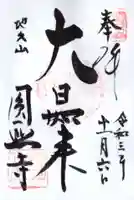 奉拝
令和三年
十一月六日
大日如来
地久山
圓興寺